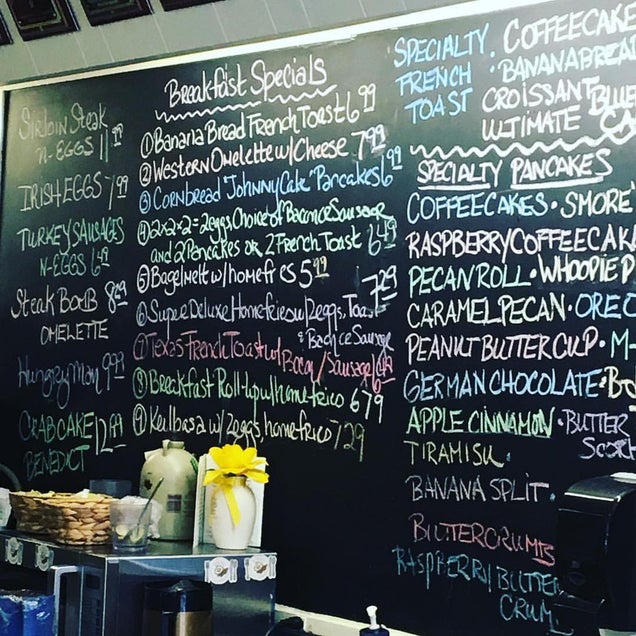 Sirloin Steak
N-EGGS 11
IRISH EGGS 7.99
TURKEY SAUSAGES
N-EGGS 6.49
Steak Bomb 8.99
OMELETTE
Hungry Man 9.99
CRABCAKE 12.99
BENEDICT
Breakfast Specials
① Banana Bread French Toast 6.99
② Western Omelette w/ Cheese 7.99
③ Cornbread "Johnny Cake" Pancakes 6.99
④ 2x2x2 = 2 eggs, Choice of Bacon or Sausage
and 2 Pancakes or 2 French Toast 6.49
⑤ Bagel melt w/ homefries 5.99
⑥ Super Deluxe Homefries w/ 2 eggs, Toast 7.29
& Bacon or Sausage
⑦ Texas French Toast w/ Bacon/Sausage 6
⑧ Breakfast Roll-up w/ homefries 6.79
⑨ Keilbasa w/ 2 eggs, homefries 7.29
SPECIALTY
FRENCH
TOAST
COFFEECAKE
· BANANABREAD
CROISSANT BLUE
ULTIMATE
SPECIALTY PANCAKES
COFFEECAKES · SMORE
RASPBERRY COFFEECAKE
PECAN ROLL · WHOOPIE P
CARAMEL PECAN · OREO
PEANUT BUTTER CUP · M-
GERMAN CHOCOLATE · Bo
APPLE CINNAMON · BUTTER
SCOTCH
TIRAMISU
BANANA SPLIT
BUTTERCRUMB
RASPBERRY BUTTER
CRUM